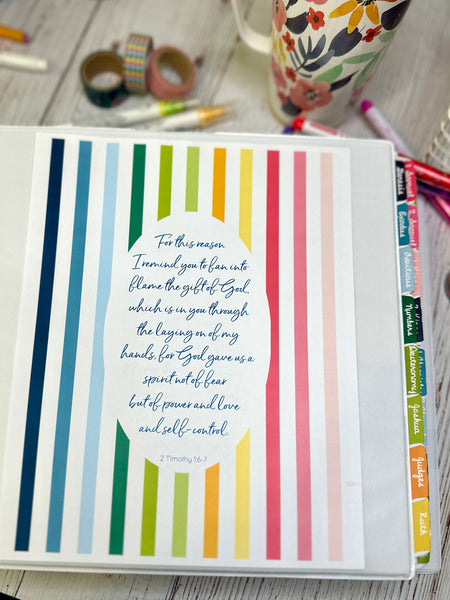 For this reason
I remind you to fan into
flame the gift of God,
which is in you through
the laying on of my
hands, for God gave us a
spirit not of fear
but of power and love
and self-control.
2 Timothy 1:6-7
Genesis
Exodus
Leviticus
Numbers
Deuteronomy
Joshua
Judges
Ruth
1 Samuel
2 Samuel